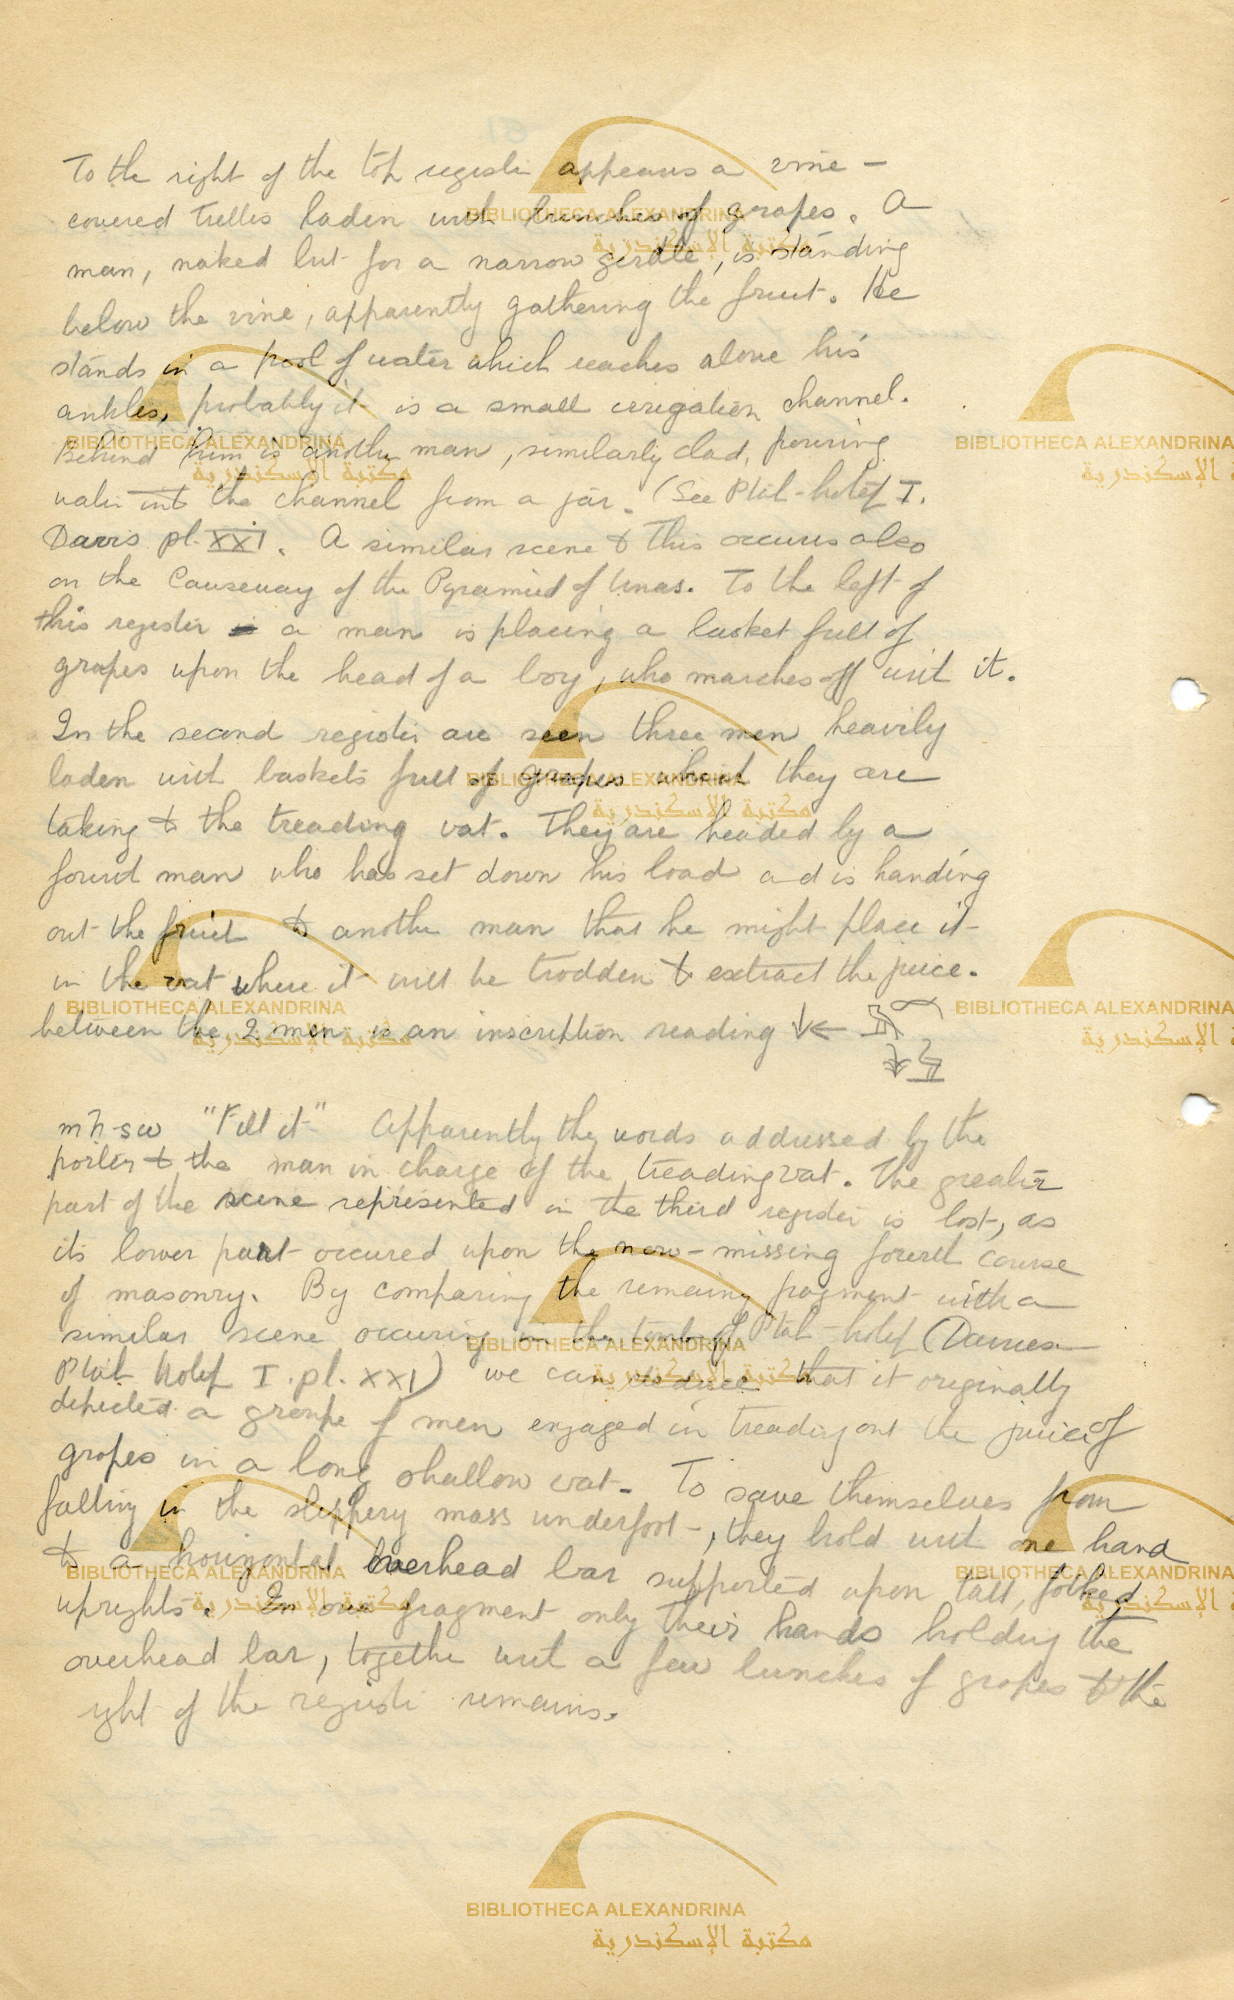 To the right of the top register appears a vine-
covered trellis laden with bunches of grapes. A
man, naked but for a narrow girdle, is standing
below the vine, apparently gathering the fruit. He
stands in a pool of water which reaches above his
ankles, probably it is a small irrigation channel.
Behind him is another man, similarly clad, pouring
water into the channel from a jar. (See Ptah-hotep I.
Davis pl. XXI. A similar scene to this occurs also
on the Causeway of the Pyramid of Unas. To the left of
this register a man is placing a basket full of
grapes upon the head of a boy, who marches off with it.
In the second register are seen three men heavily
laden with baskets full of grapes which they are
taking to the treading vat. They are headed by a
fourth man who has set down his load and is handing
out the fruit to another man that he might place it
in the vat where it will be trodden to extract the juice.
between the 2 men is an inscription reading ↓←
mḥ-sw "Fill it" Apparently the words addressed by the
porter to the man in charge of the treading vat. The greater
part of the scene represented in the third register is lost, as
its lower part occured upon the now-missing fourth course
of masonry. By comparing the remaing fragment with a
similar scene occuring in the tomb of Ptah-hotep (Davies
Ptah hotep I. pl. XXI) we can that it originally
depicted a groupe of men engaged in treading out the juice of
grapes in a long shallow vat. To save themselves from
falling in the slippery mass underfoot, they hold with one hand
to a horizontal overhead bar supported upon tall, forked
uprights. In our fragment only their hands holding the
overhead bar, together with a few bunches of grapes to the
right of the register remains.
BIBLIOTHECA ALEXANDRINA
مكتبة الإسكندرية